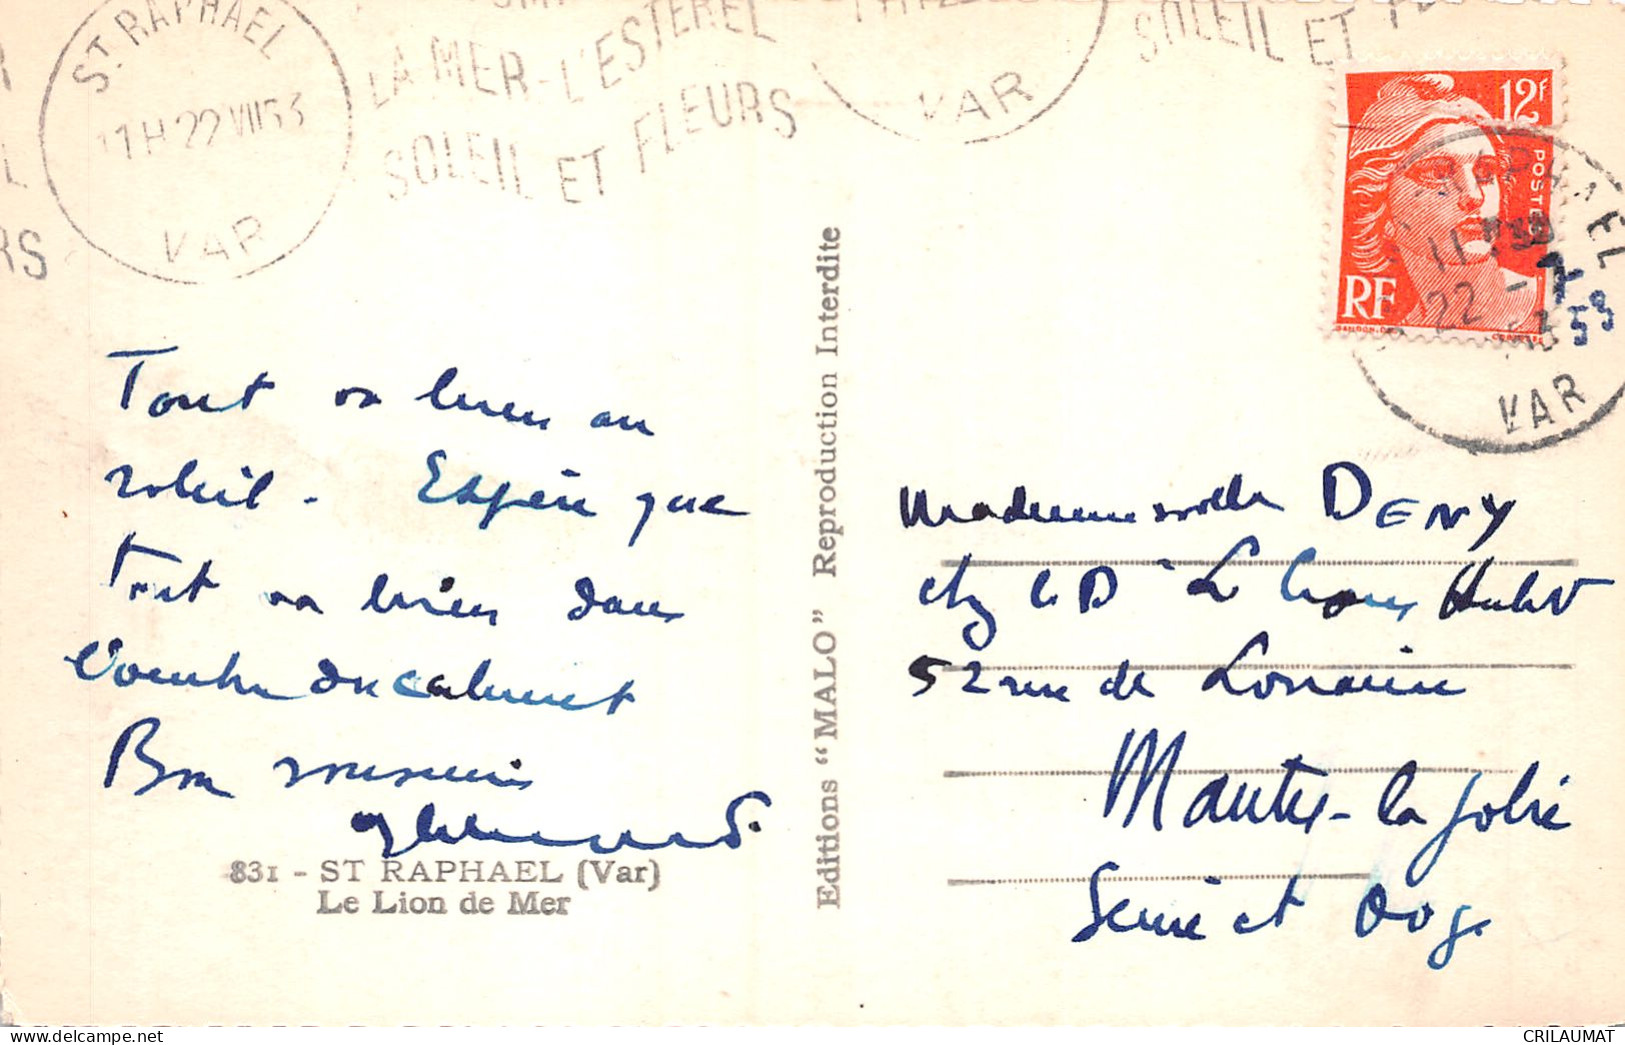 ST RAPHAEL
11H 22 VII 53
VAR
LA MER-L'ESTEREL
SOLEIL ET FLEURS
VAR
SOLEIL ET
RS
12F
POSTES
RF
RAPHAEL
22 - 7
53
VAR
Tout va bien au
soleil - Espère que
tout va bien dans
l'ombre du cabinet
Bon souvenir
831 - ST RAPHAEL (Var)
Le Lion de Mer
Editions "MALO" Reproduction Interdite
Mademoiselle DENY
chez le Dr
52 rue de Lorraine
Mantes-la Jolie
Seine et Oise
CRILAUMAT